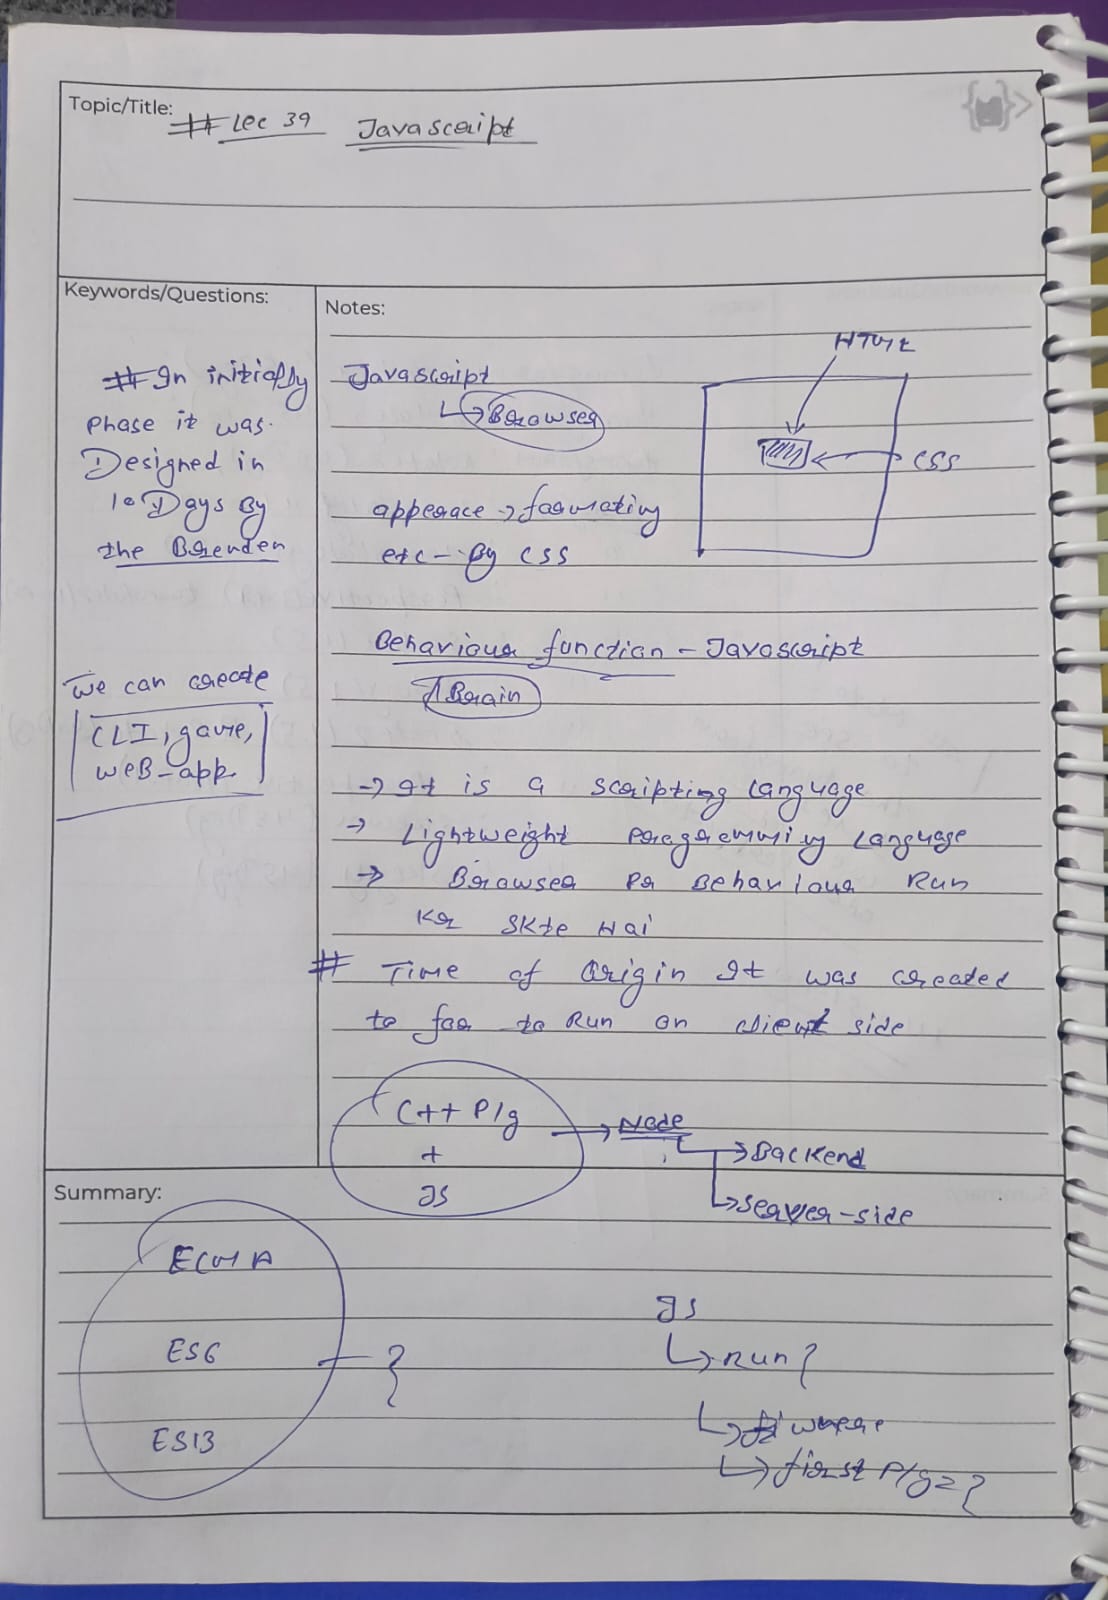 Topic/Title:
# Lec 39 Javascript
Keywords/Questions:
# In initially
phase it was
Designed in
10 Days By
the Brenden
We can create
CLI, game,
web-app
Notes:
Javascript
Browser
HTML
CSS
apperace → formating
etc - By CSS
Behaviour function - Javascript
Brain
→ It is a scripting language
→ Lightweight Programming Language
→ Browser Pr Behaviour Run
Kr Skte Hai
# Time of Origin It was created
to for to Run on client side
C++ P/g
+
JS
→ Node
→ Backend
→ server-side
Summary:
ECMA
ES6
ES13
JS
→ Run ?
→ where
→ first P/g = ?